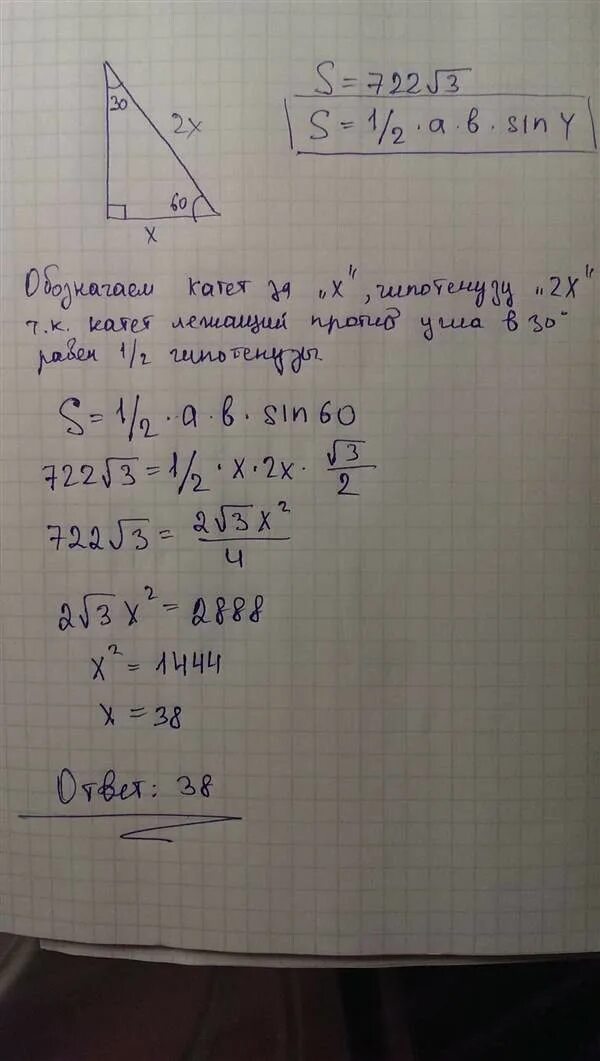 30
2x
60
x
S = 722√3
S = 1/2 · a · b · sin γ
Обозначаем катет за „x“, гипотенузу „2x“
т.к. катет лежащий против угла в 30°
равен 1/2 гипотенузы.
S = 1/2 · a · b · sin 60
722√3 = 1/2 · x · 2x · √3/2
722√3 = 2√3x²/4
2√3 x² = 2888
x² = 1444
x = 38
Ответ: 38